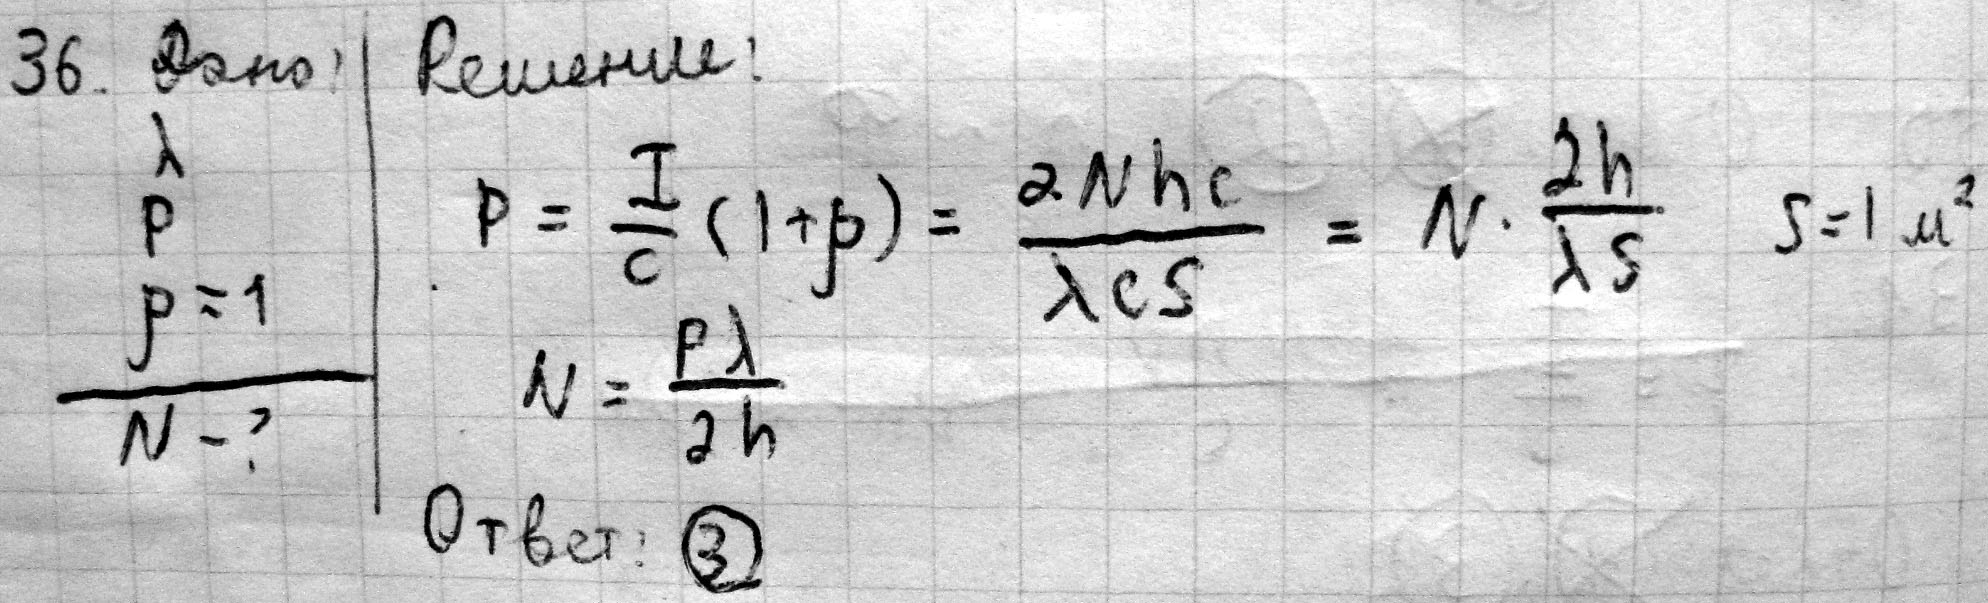 36. Дано:
λ
P
ρ = 1
N - ?
Решение:
P = I/c (1+ρ) = 2Nhc/λcS = N · 2h/λS S = 1 м²
N = Pλ/2h
Ответ: 3